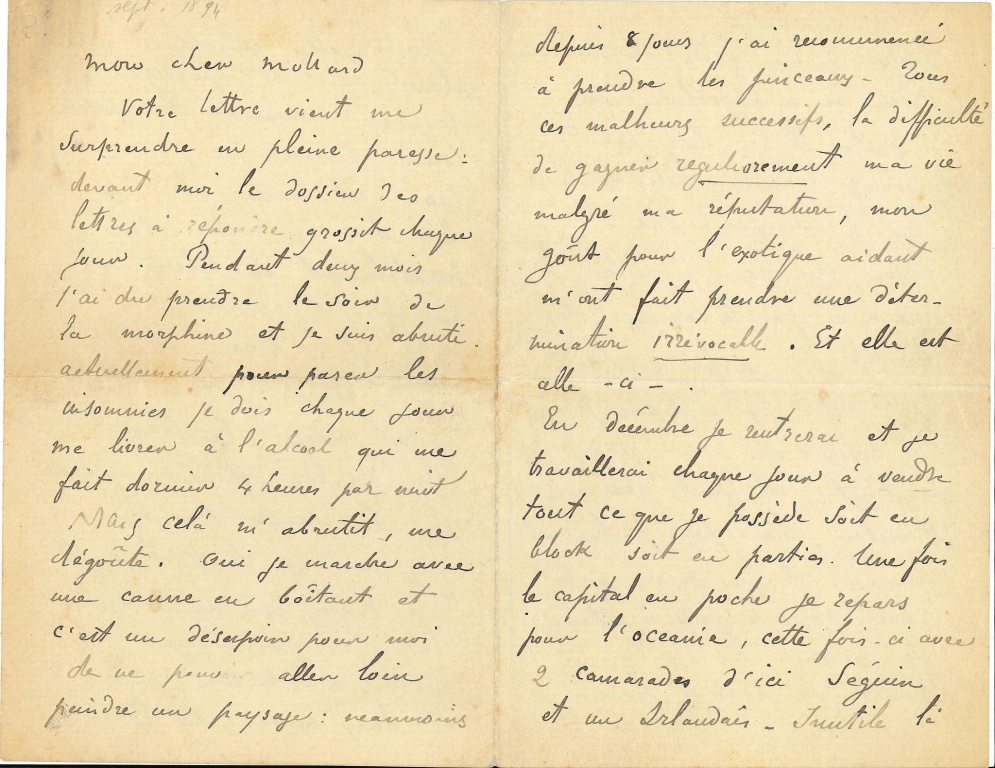 sept. 1894
Mon cher Mollard
Votre lettre vient me
surprendre en pleine paresse:
devant moi le dossier des
lettres à répondre grossit chaque
jour. Pendant deux mois
j'ai du prendre le soir de
la morphine et je suis abruti.
actuellement pour parer les
insomnies je dois chaque jour
me livrer à l'alcool qui me
fait dormir 4 heures par nuit
Mais celà m'abrutit, me
dégoûte. Oui je marche avec
une canne en bôitant et
c'est un désespoir pour moi
de ne pouvoir aller loin
peindre un paysage: neanmoins
depuis 8 jours j'ai recommencé
à prendre les pinceaux - Tous
ces malheurs successifs, la difficulté
de gagner regulierement ma vie
malgré ma réputation, mon
goût pour l'exotique aidant
m'ont fait prendre une déter-
mination irrévocable. Et elle est
celle - ci - .
En décémbre je rentrerai et je
travaillerai chaque jour à vendre
tout ce que je possède soit en
block soit en parties. Une fois
le capital en poche je repars
pour l'oceanie, cette fois-ci avec
2 camarades d'ici Séguin
et un Irlandais - Inutile là